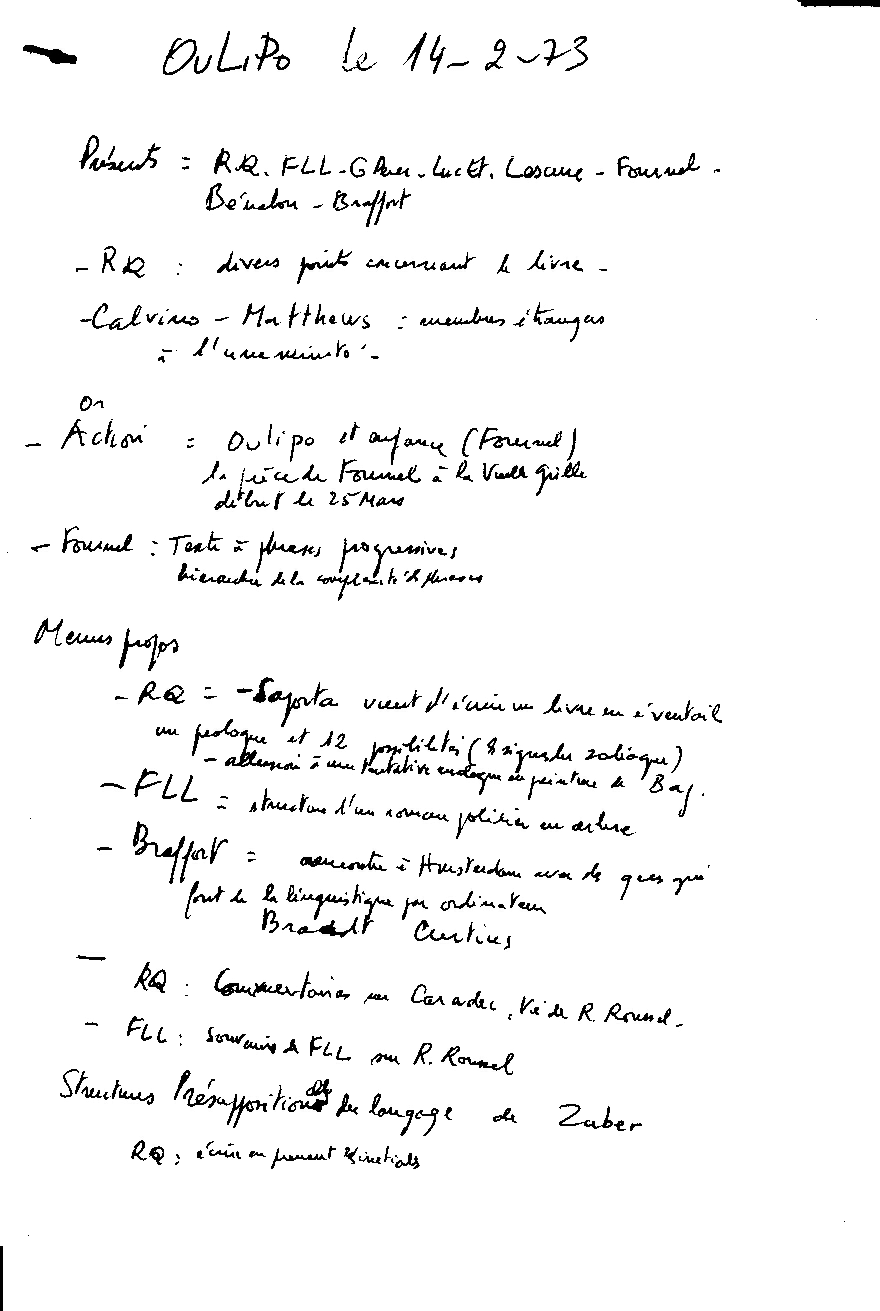 OuLiPo le 14-2-73
Présents = R.Q. FLL - G Perec - Luc Et. Lescure - Fournel -
Bénabou - Braffort
- RQ : divers points concernant le livre -
- Calvino - Matthews : membres étrangers
à l'unanimité -
On
- Action = Oulipo et enfance (Fournel)
la pièce de Fournel à la Vieille Grille
début le 25 Mars
- Fournel : Texte à phrases progressives
hiérarchie de la complexité de phrases
Menus propos
- RQ = - Saporta vient d'écrire un livre en éventail
un prologue et 12 possibilités ( signes du zodiaque)
- allusion à une tentative analogue en peinture de Baj.
- FLL = structure d'un roman policier en arbre
- Braffort = rencontre à Amsterdam avec des gens qui
font de la linguistique par ordinateur
Brandt Curtius
- RQ : Commentaires sur Caradec, Vie de R. Roussel -
- FLL : Souvenirs de FLL sur R. Roussel
Structures Présuppositionelles du langage de Zuber
RQ : écrire en prenant initiales